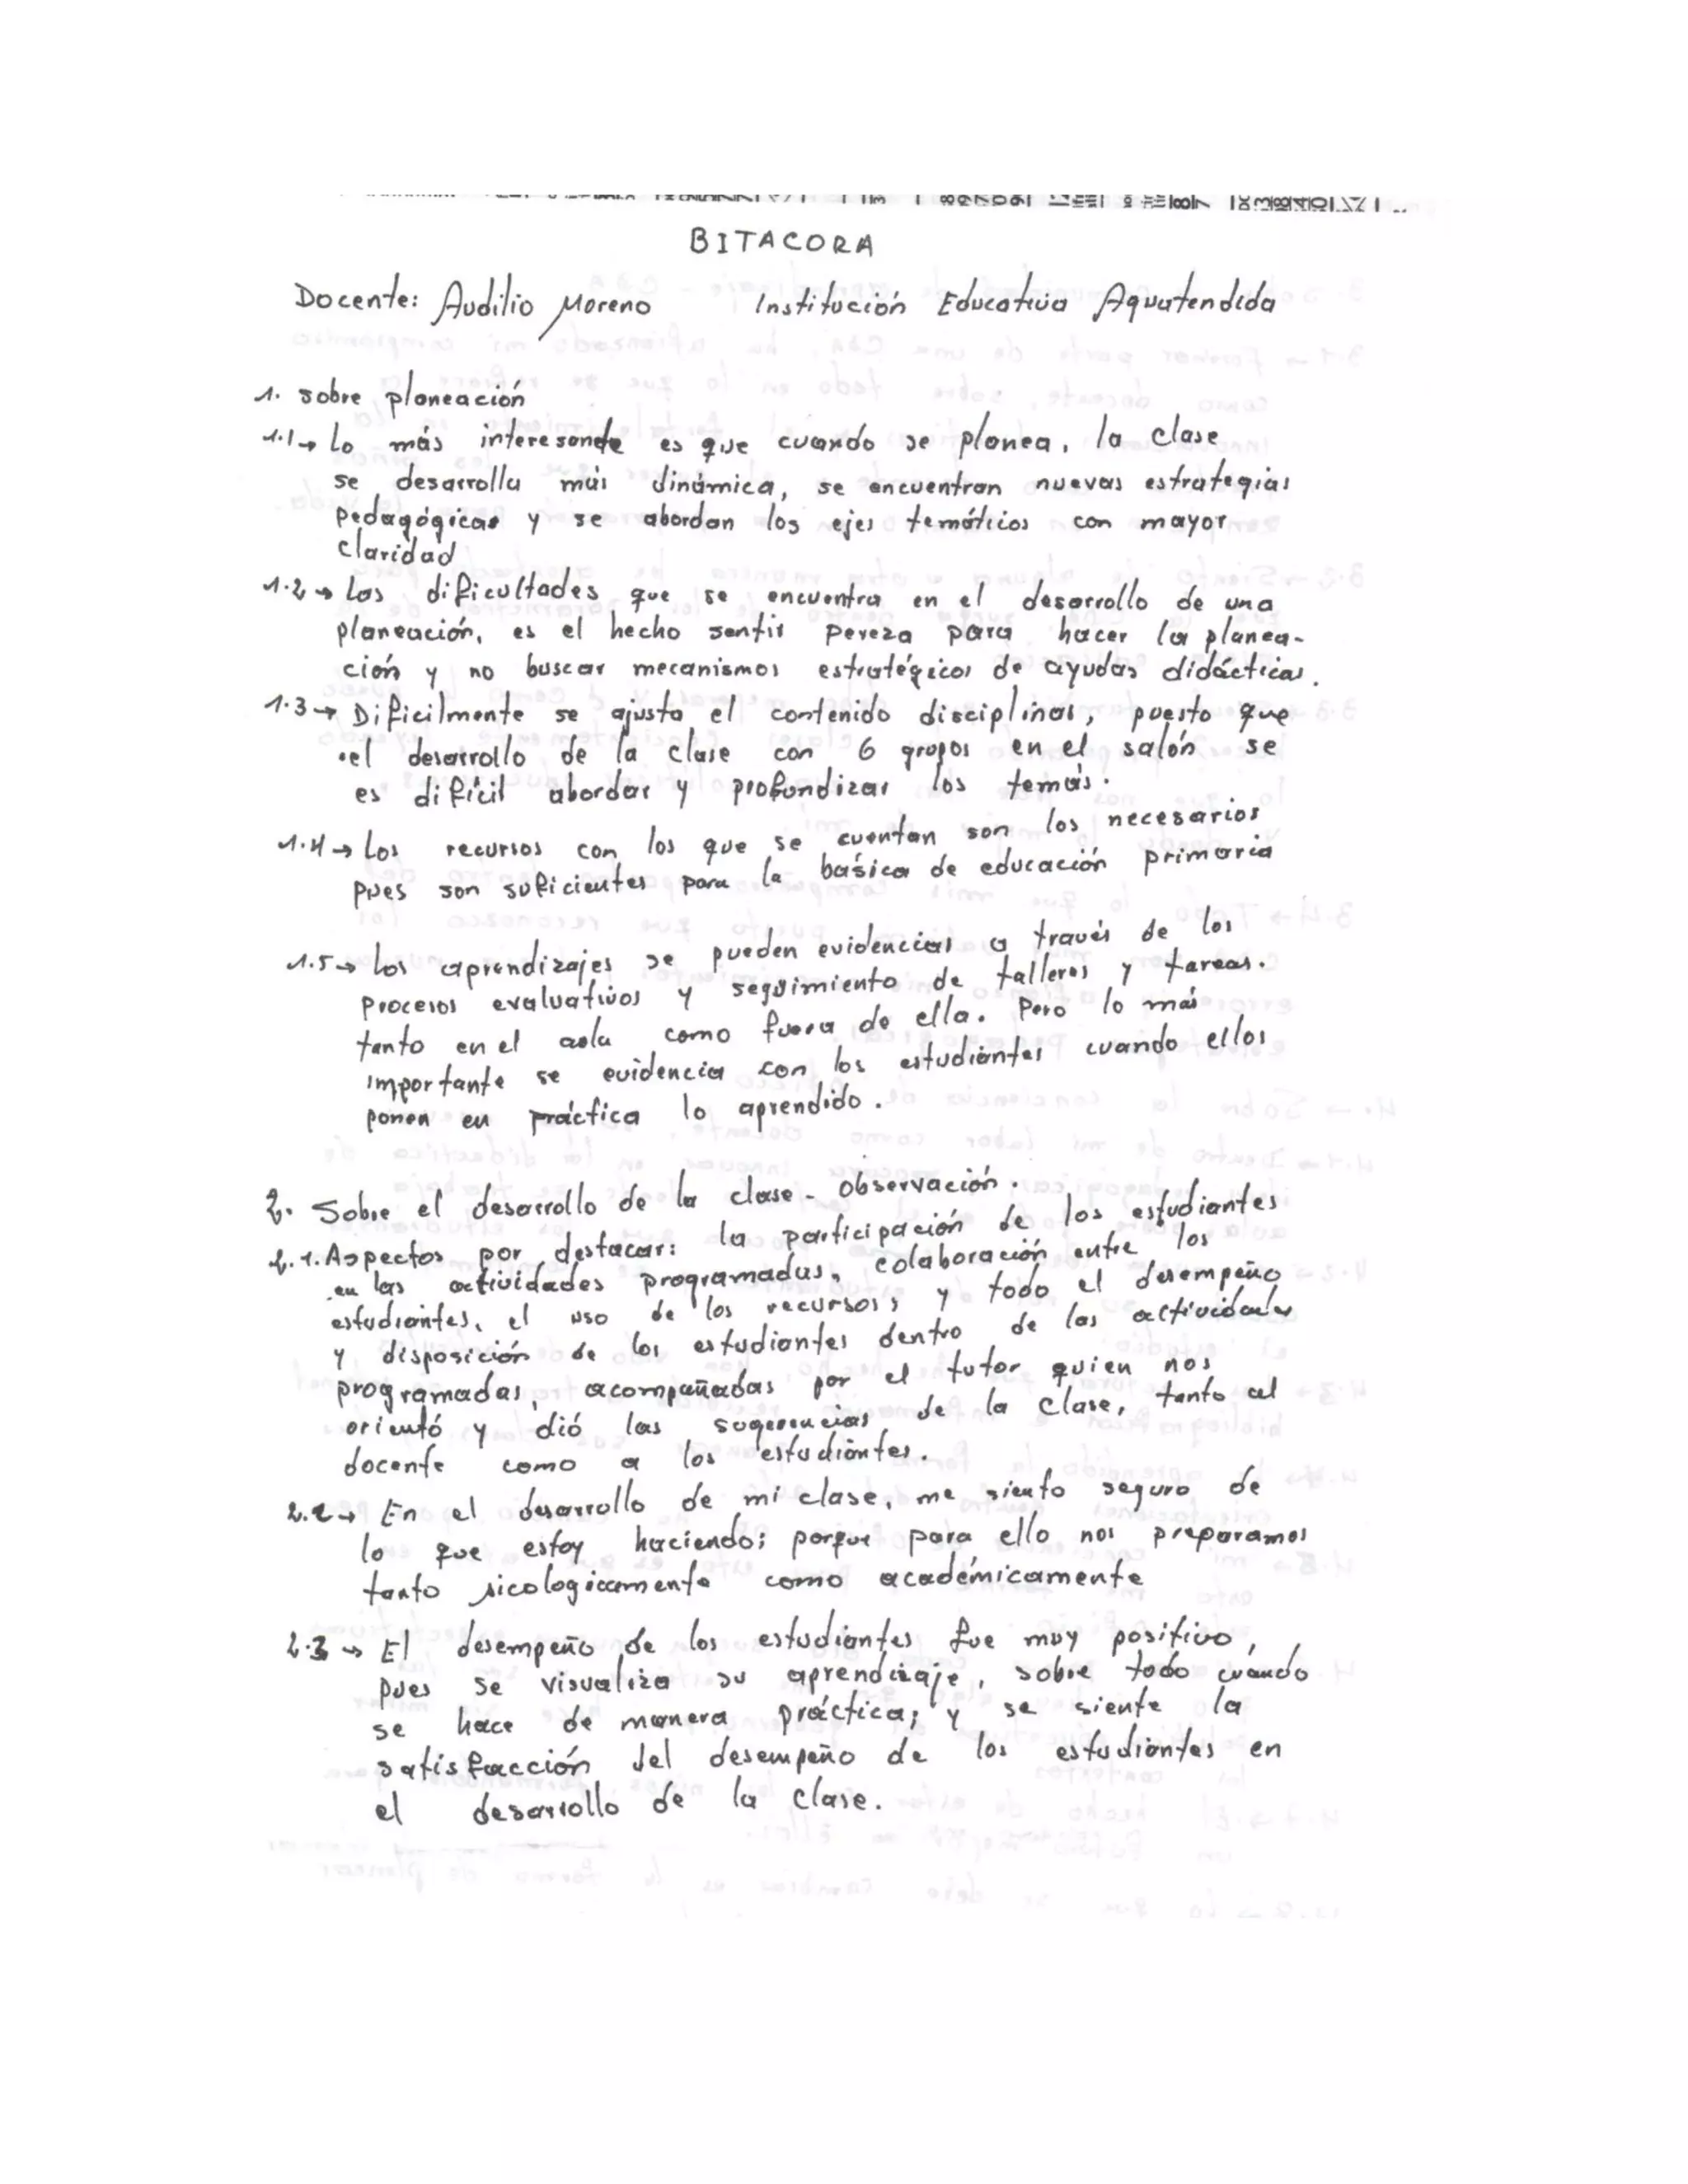 BITACORA
Docente: Audilio Moreno Institución Educativa Aguatendida
1. Sobre planeación
1.1→ Lo más interesante es que cuando se planea, la clase
se desarrolla más dinámica, se encuentran nuevas estrategias
Pedagógicas y se abordan los ejes temáticos con mayor
claridad
1.2→ Las dificultades que se encuentra en el desarrollo de una
planeación, es el hecho sentir pereza para hacer la planea-
ción y no buscar mecanismos estratégicos de ayudas didácticas.
1.3→ Dificilmente se ajusta el contenido disciplinar, puesto que
el desarrollo de la clase con 6 grupos en el salón se
es difícil abordar y profundizar los temas.
1.4→ Los recursos con los que se cuentan son los necesarios
pues son suficientes para la basica de educación primaria
1.5→ Los aprendizajes se pueden evidenciar a través de los
procesos evaluativos y seguimiento de talleres y tareas.
tanto en el aula como fuera de ella. Pero lo más
importante se evidencia con los estudiantes cuando ellos
ponen en práctica lo aprendido.
2. Sobre el desarrollo de la clase - observación.
2.1. Aspectos por destacar: la participación de los estudiantes
en las actividades programadas, colaboración entre los
estudiantes, el uso de los recursos, y todo el desempeño
y disposición de los estudiantes dentro de las actividades
programadas, acompañadas por el tutor quien nos
orientó y dió las sugerencias de la clase, tanto al
docente como a los estudiantes.
2.2→ En el desarrollo de mi clase, me siento seguro de
lo que estoy haciendo; porque para ello nos preparamos
tanto sicologicamente como académicamente
2.3→ El desempeño de los estudiantes fue muy positivo,
pues se visualiza su aprendizaje, sobre todo cuando
se hace de manera práctica; y se siente la
satisfacción del desempeño de los estudiantes en
el desarrollo de la clase.